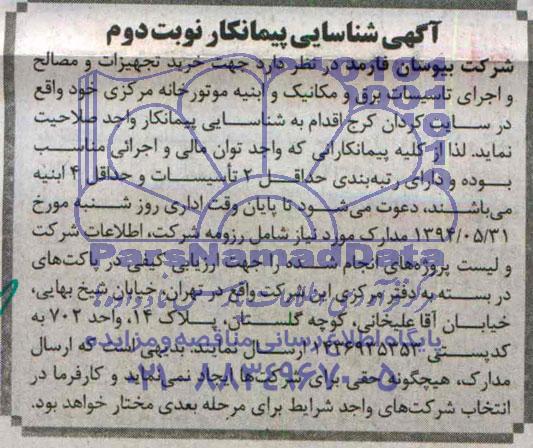 آگهی شناسایی پیمانکار نوبت دوم
شرکت بیوسان فارمد در نظر دارد جهت خرید تجهیزات و مصالح
و اجرای تاسیسات برق و مکانیک و ابنیه موتورخانه مرکزی خود واقع
در سایت کردان کرج اقدام به شناسایی پیمانکار واجد صلاحیت
نماید. لذا از کلیه پیمانکارانی که واجد توان مالی و اجرائی مناسب
بوده و دارای رتبه‌بندی حداقل ۲ تأسیسات و حداقل ۴ ابنیه
می‌باشند، دعوت می‌شود تا پایان وقت اداری روز شنبه مورخ
۱۳۹۴/۰۵/۳۱ مدارک مورد نیاز شامل رزومه شرکت، اطلاعات شرکت
و لیست پروژه‌های انجام شده را جهت ارزیابی کیفی در پاکت‌های
در بسته به دفتر مرکزی این شرکت واقع در تهران، خیابان شیخ بهایی،
خیابان آقاعلیخانی، کوچه گلستان، پلاک ۱۴، واحد ۷۰۲ به
کدپستی ارسال نمایند. بدیهی است که ارسال
مدارک، هیچگونه حقی برای شرکت‌ها ایجاد نمی‌نماید و کارفرما در
انتخاب شرکت‌های واجد شرایط برای مرحله بعدی مختار خواهد بود.
ParsNamadData
پایگاه اطلاع رسانی مناقصه و مزایده
۰۲۱-۸۸۳۴۹۶۷۰-۵